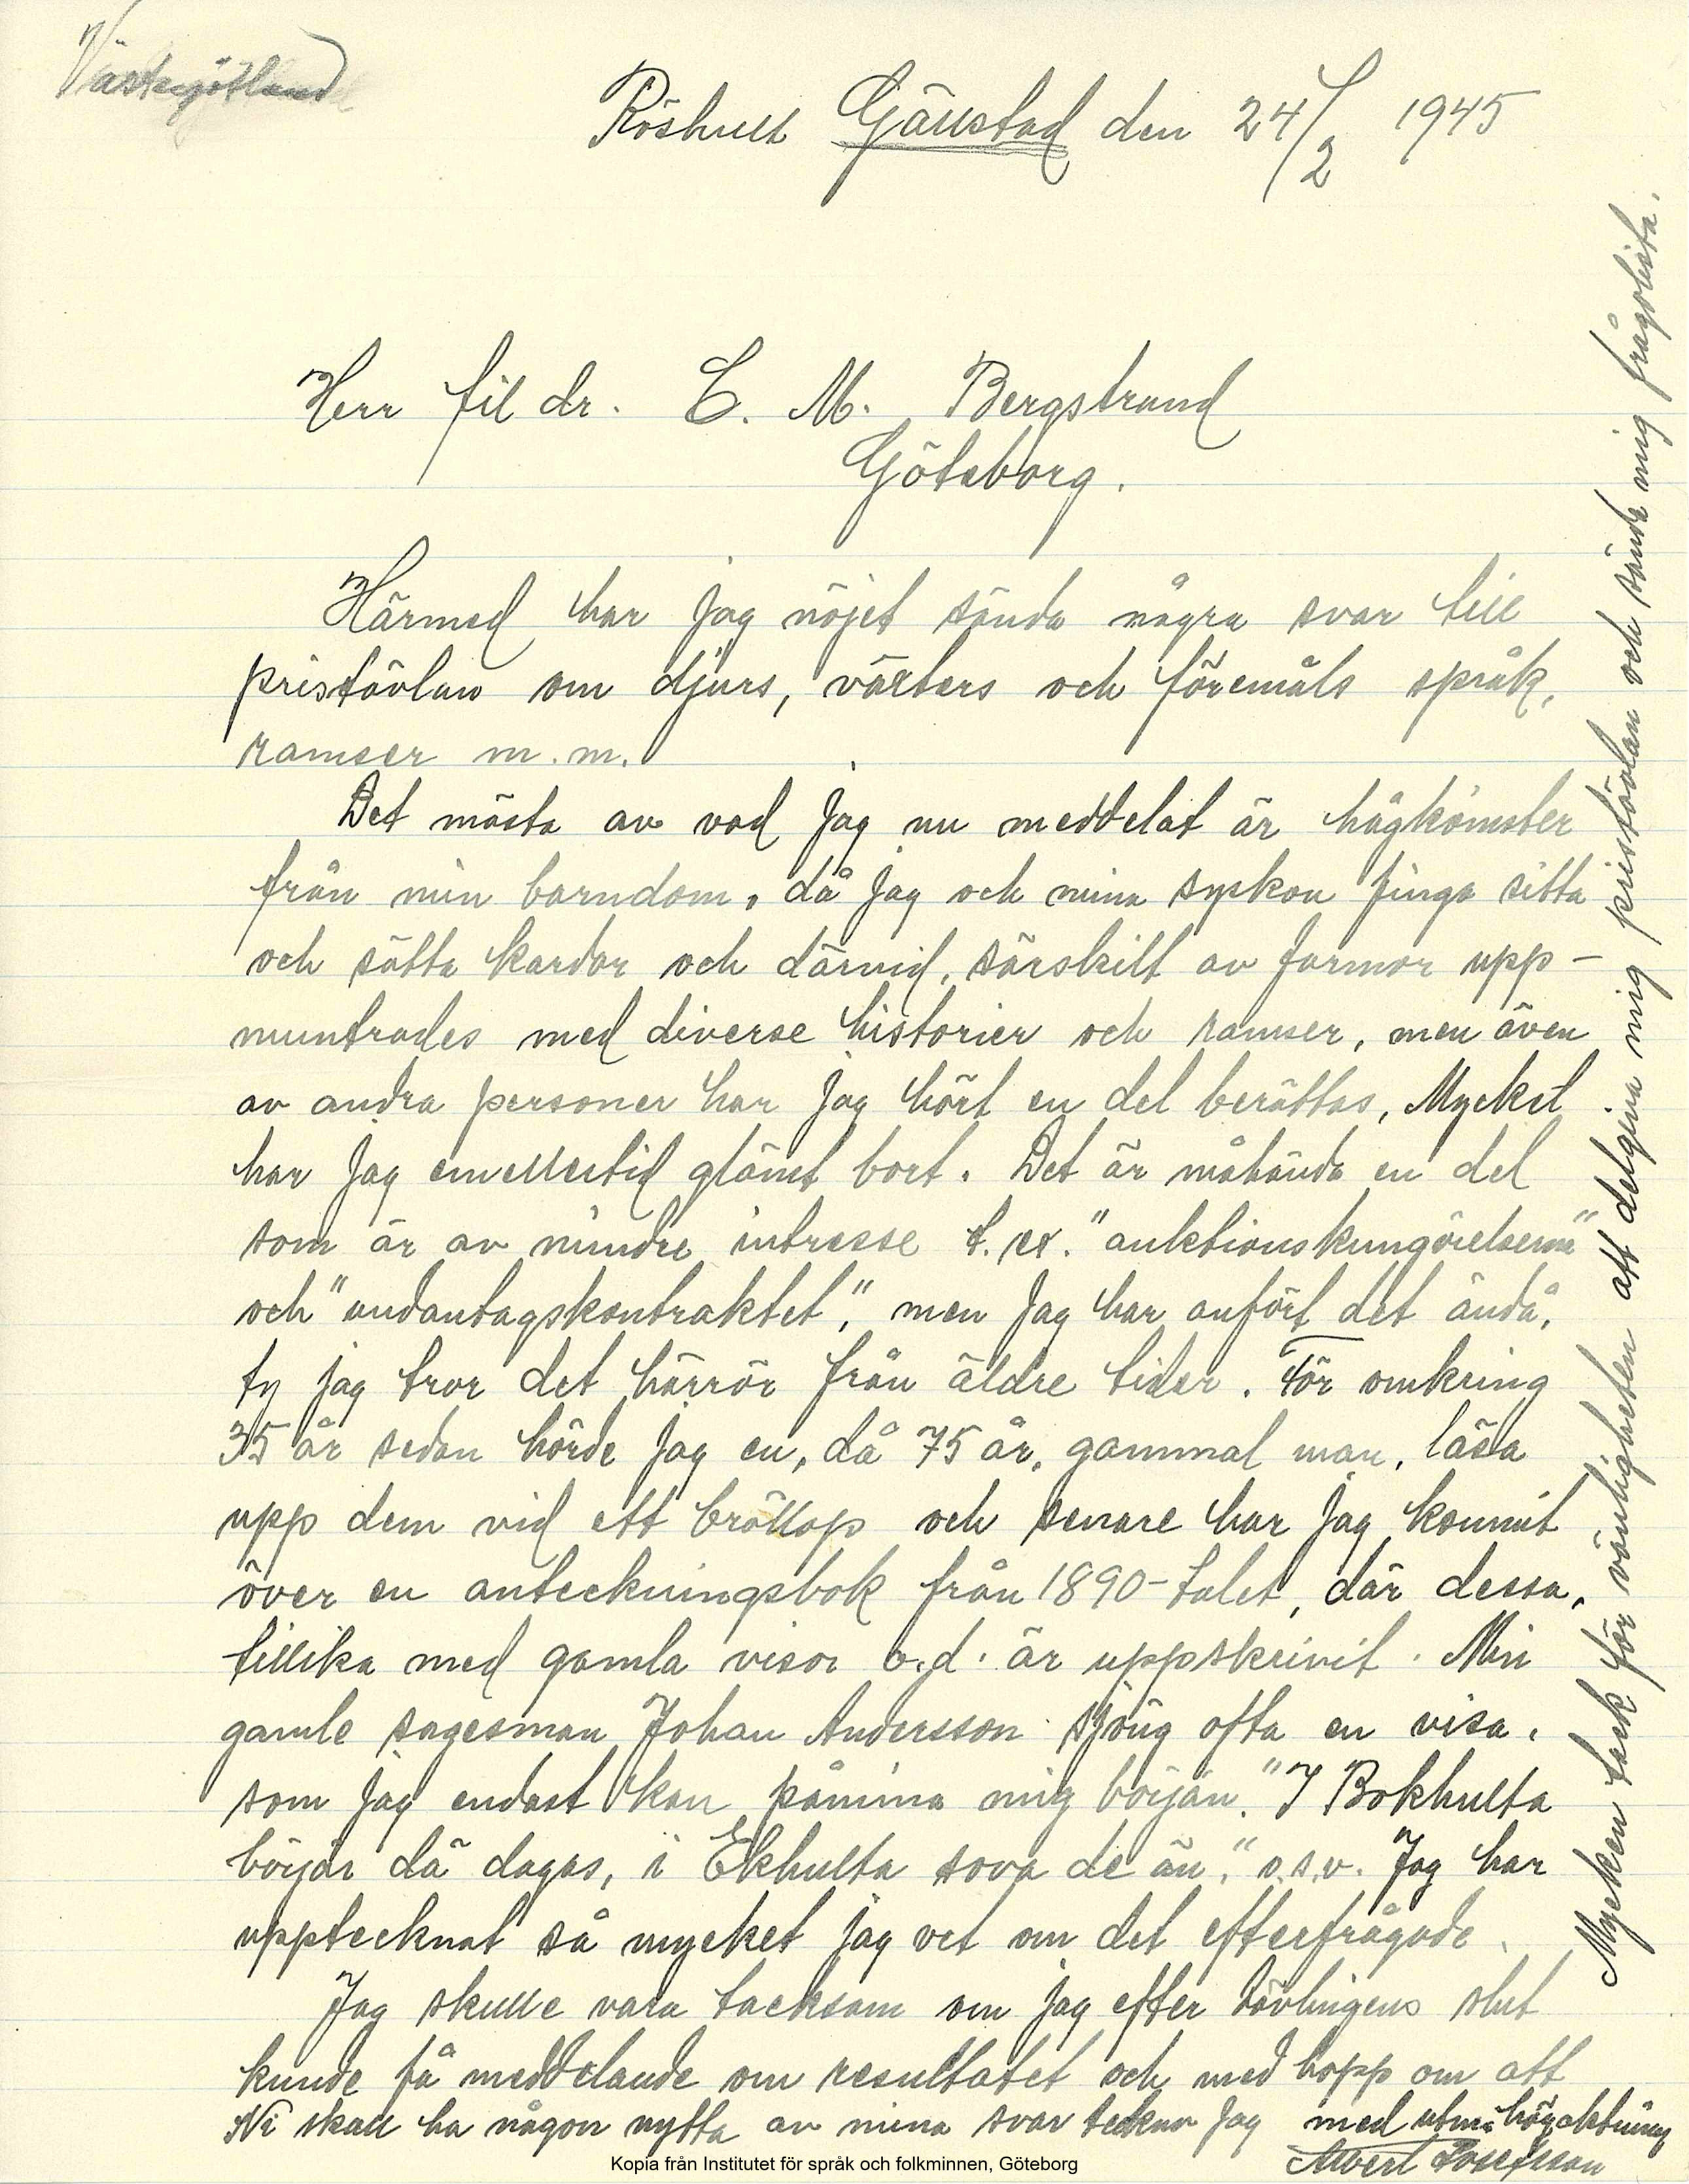 Västergötland
Röshult Gällstad den 24/2 1945
Herr fil dr. C. M. Bergstrand
Göteborg.
Härmed har jag nöjet sända några svar till
pristävlan om djurs, växters och föremåls språk,
ramser m.m.
Det mästa av vad jag nu meddelat är hågkomster
från min barndom, då jag och mina syskon finga sitta
och sätta kardor och därvid, särskilt av farmor upp-
muntrades med diverse historier och ramser, men även
av andra personer har jag hört en del berättas, Mycket
har jag emellertid glömt bort. Det är måhända en del
som är av mindre intresse t.ex. "auktionskungörelserna"
och "undantagskontraktet", men jag har anfört det ändå,
ty jag tror det härrör från äldre tider. För omkring
35 år sedan hörde jag en, då 75 år, gammal man, läsa
upp dem vid ett bröllop och senare har jag kommit
över en anteckningsbok från 1890-talet, där dessa,
tillika med gamla visor o.d. är uppskrivit. Min
gamle sagesman Johan Andersson sjöng ofta en visa,
som jag endast kan påminna mig början. "I Bokhulta
börjar då dagas, i Ekhulta sova de än", o.s.v. Jag har
upptecknat så mycket jag vet om det efterfrågade.
Jag skulle vara tacksam om jag efter tävlingens slut
kunde få meddelande om resultatet och med hopp om att
Ni skall ha någon nytta av mina svar tecknar jag med utm. högaktning
Albert Josefsson
Mycken tack för vänligheten att delgiva mig pristävlan och sända mig frågolista.
Kopia från Institutet för språk och folkminnen, Göteborg